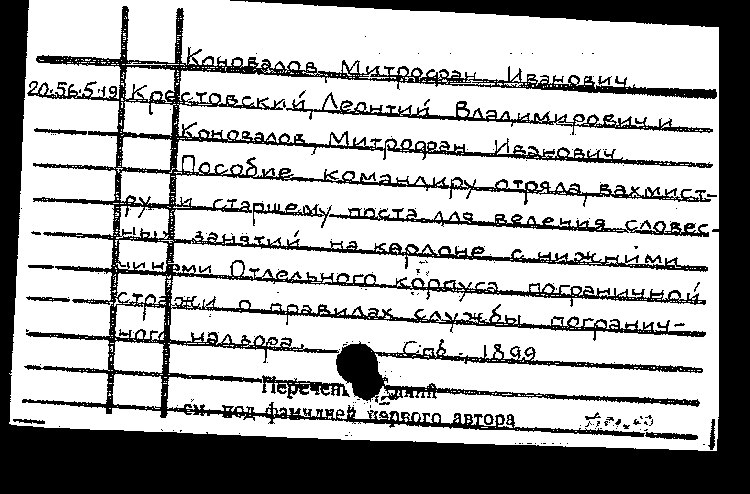 Коновалов, Митрофан Иванович.
20.56.5.19 Крестовский, Леонтий Владимирович и
Коновалов, Митрофан Иванович.
Пособие командиру отряда, вахмист-
ру и старшему поста для ведения словес-
ных занятий на кордоне с нижними
чинами Отдельного корпуса пограничной
стражи о правилах службы погранич-
ного надзора. Спб., 1899
Перечень
см. под фамилией первого автора